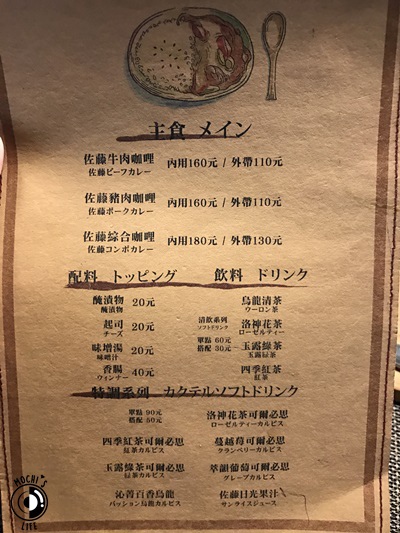 主食 メイン
佐藤牛肉咖哩 內用160元 / 外帶110元
佐藤ビーフカレー
佐藤豬肉咖哩 內用160元 / 外帶110元
佐藤ポークカレー
佐藤綜合咖哩 內用180元 / 外帶130元
佐藤コンボカレー
配料 トッピング
醃漬物 20元
醃漬物
起司 20元
チーズ
味增湯 20元
味噌汁
香腸 40元
ウィンナー
飲料 ドリンク
清飲系列
ソフトドリンク
單點 60元
搭配 30元
烏龍清茶
ウーロン茶
洛神花茶
ローゼルティー
玉露綠茶
玉露緑茶
四季紅茶
紅茶
特調系列 カクテルソフトドリンク
單點 90元
搭配 50元
洛神花茶可爾必思
ローゼルティーカルピス
四季紅茶可爾必思
紅茶カルピス
蔓越莓可爾必思
クランベリーカルピス
玉露綠茶可爾必思
緑茶カルピス
萃韻葡萄可爾必思
グレープカルピス
沁菁百香烏龍
パッション烏龍カルピス
佐藤日光果汁
サンライズジュース
MOCHI'S
LIFE